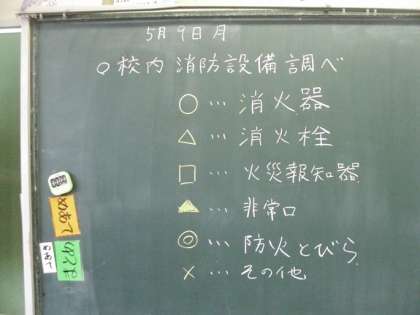 5月9日月
○校内消防設備調べ
○…消火器
△…消火栓
□…火災報知器
▲…非常口
◎…防火とびら
×…その他
めあて
まとめ
めあて